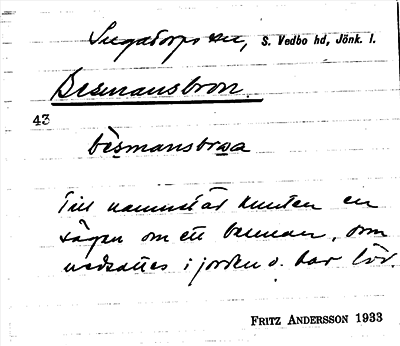 S. Vedbo hd, Jönk. l.
Besmansbron
43
bèsmansbrωa
Till namnet är knuten en
sägen om ett besman, som
nedsattes i jorden o.
FRITZ ANDERSSON 1933